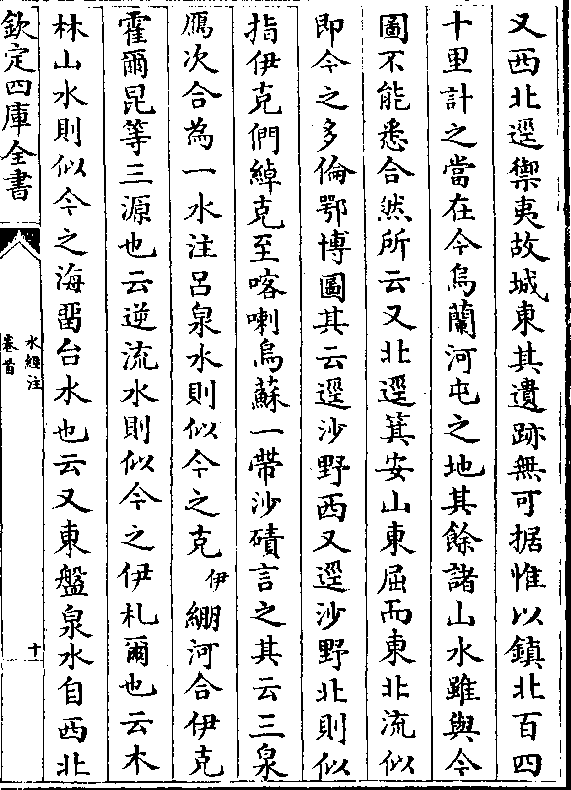 又西北逕禦夷故城東其遺跡無可据惟以鎮北百四
十里計之當在今烏蘭河屯之地其餘諸山水雖與今
圖不能悉合然所云又北逕箕安山東屈而東北流似
即今之多倫鄂博圖其云逕沙野西又逕沙野北則似
指伊克們綽克至喀喇烏蘇一帶沙磧言之其云三泉
鴈次合為一水注呂泉水則似今之克伊繃河合伊克
霍爾昆等三源也云逆流水則似今之伊札爾也云木
林山水則似今之海畱台水也云又東盤泉水自西北
欽定四庫全書
水經注
卷首
十